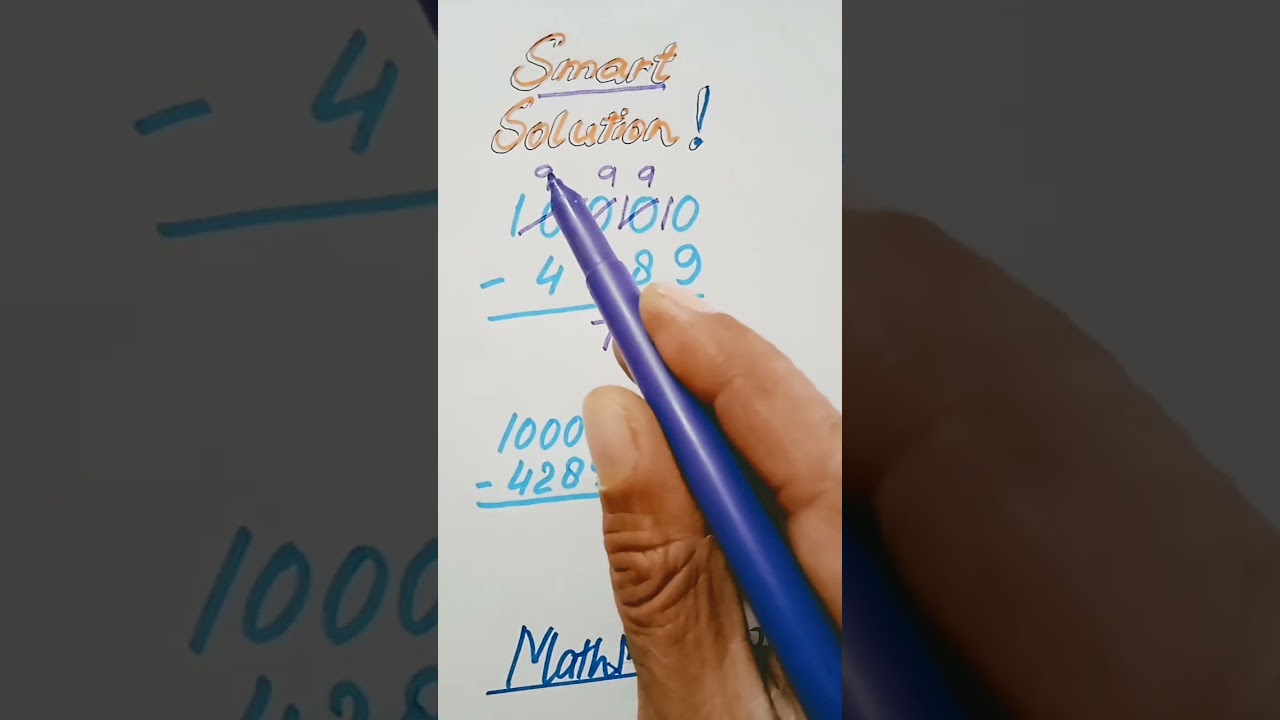 Smart
Solution!
9 9 9
10 0 10 10
- 4 89
7
1000
- 428
Math